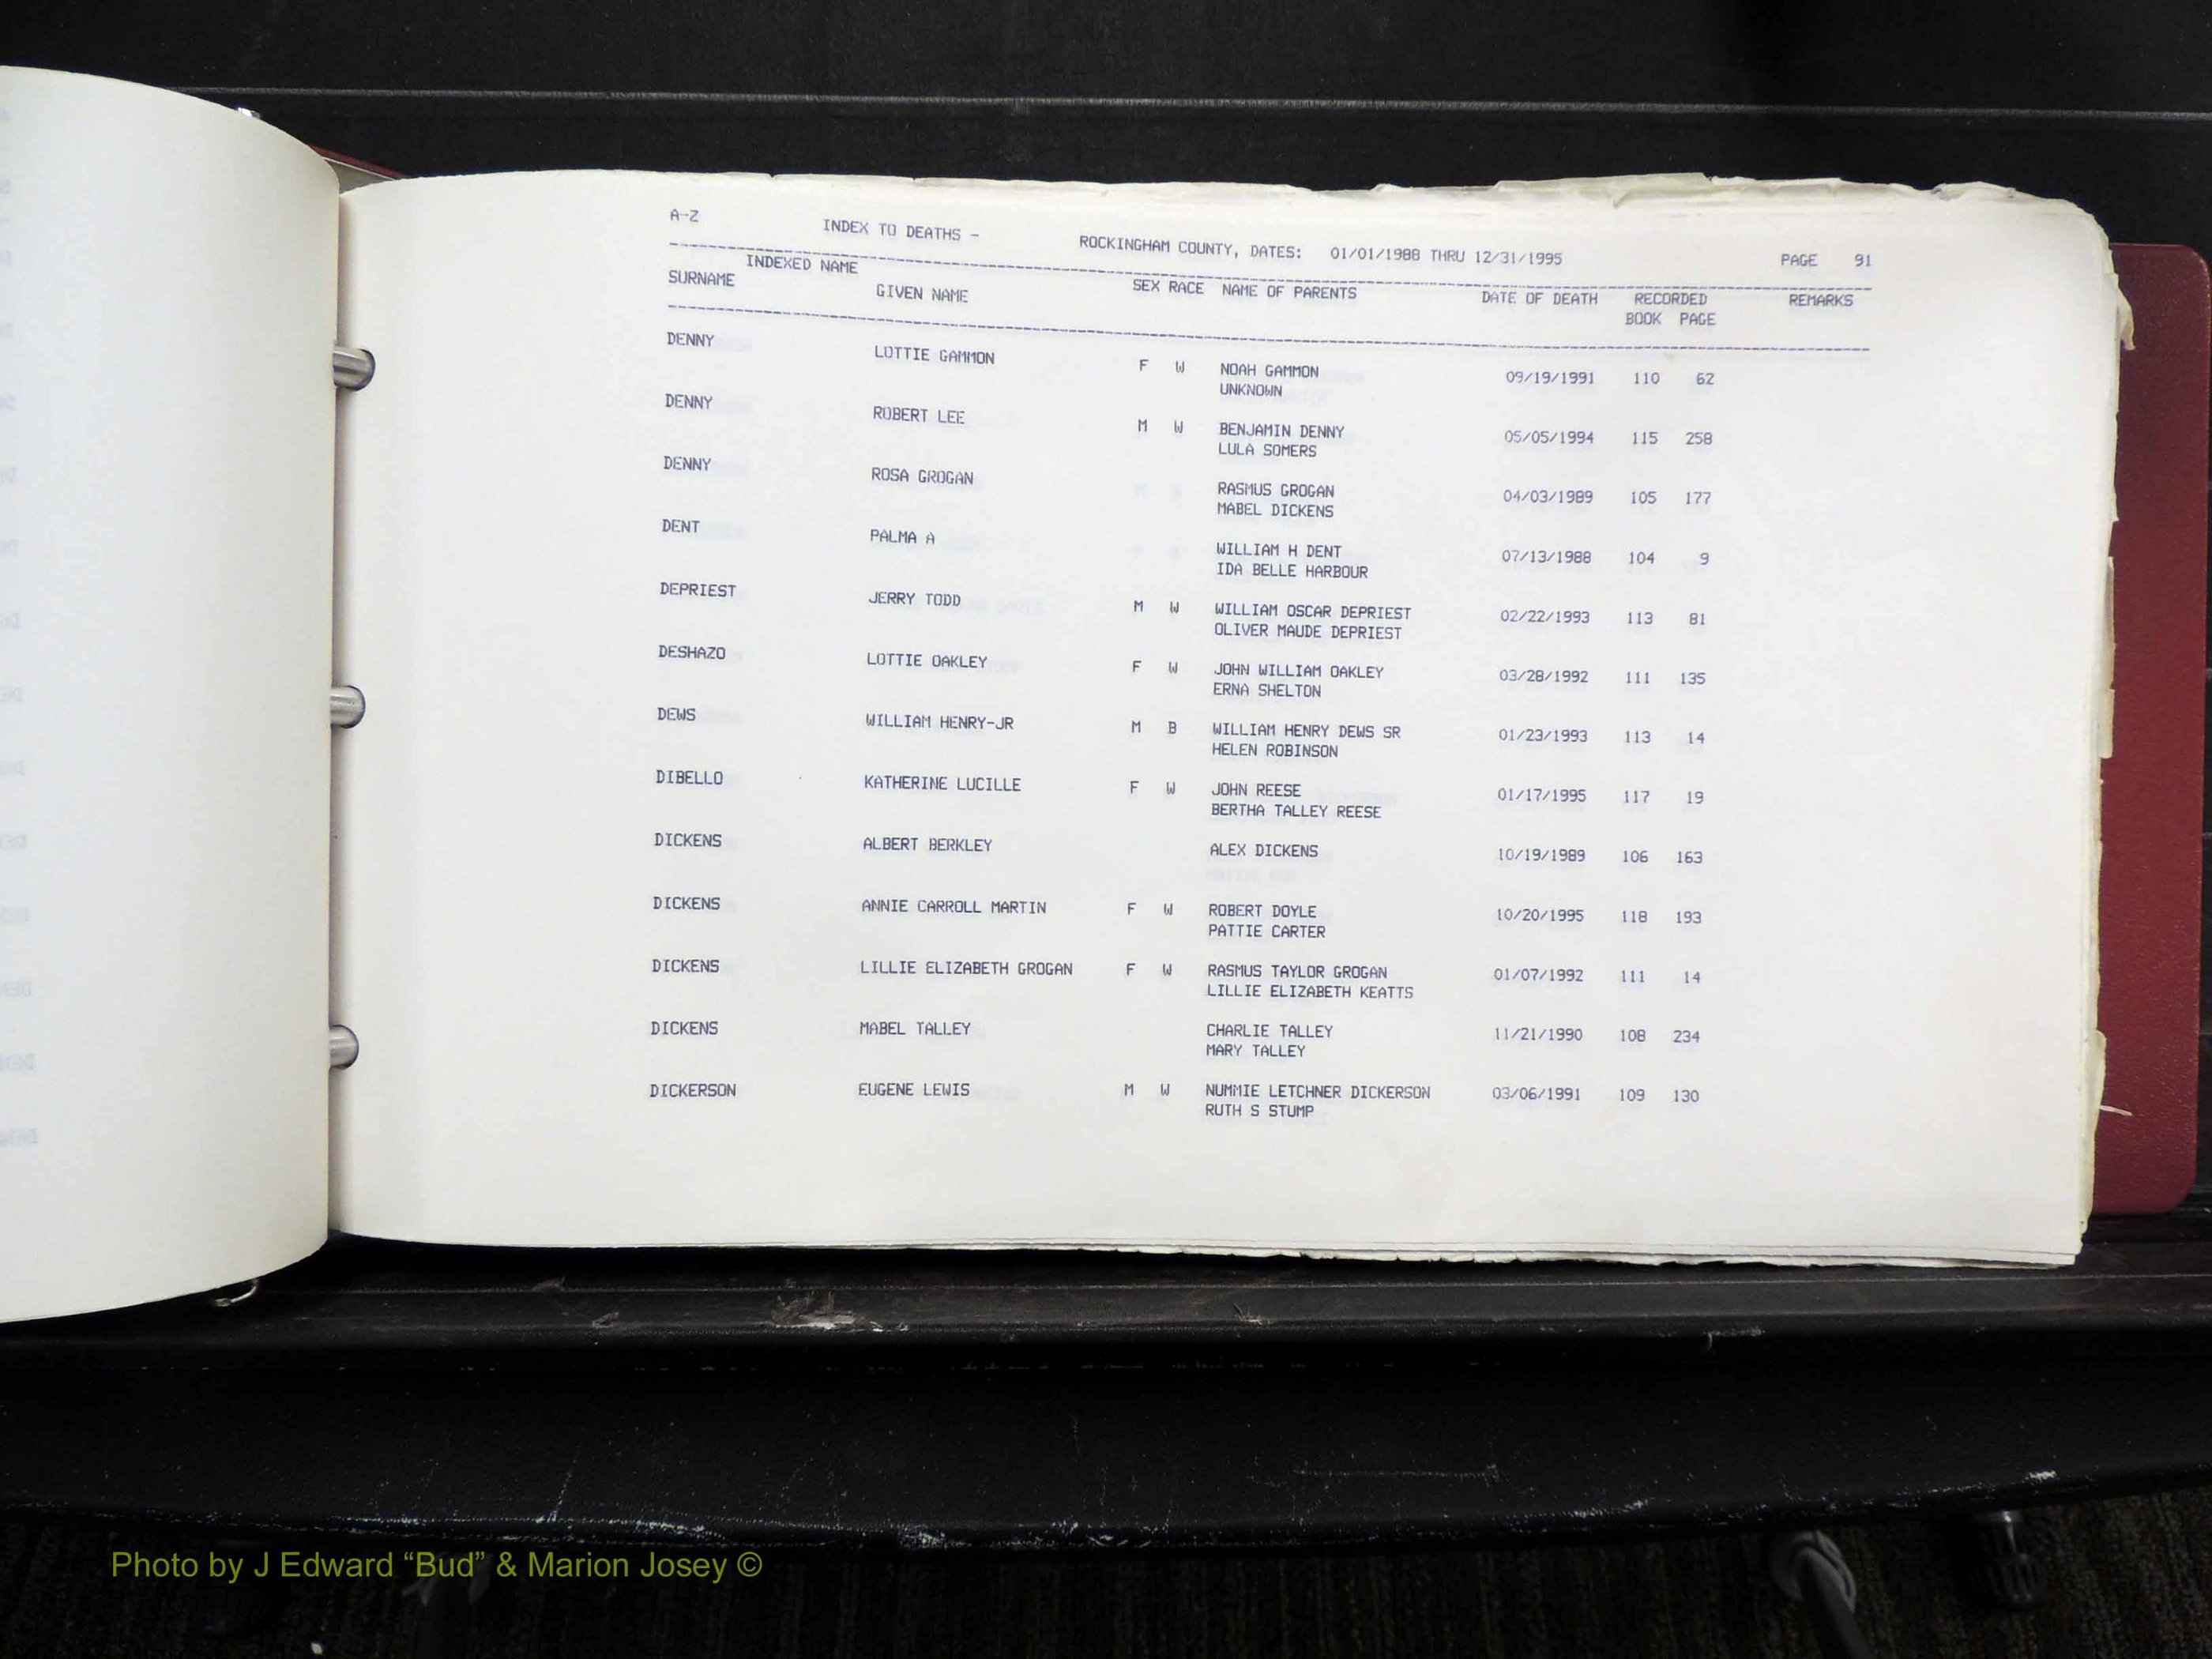 A-Z INDEX TO DEATHS - ROCKINGHAM COUNTY, DATES: 01/01/1988 THRU 12/31/1995 PAGE 91
INDEXED NAME
SURNAME GIVEN NAME SEX RACE NAME OF PARENTS DATE OF DEATH RECORDED REMARKS
BOOK PAGE
DENNY LOTTIE GAMMON F W NOAH GAMMON 09/19/1991 110 62
UNKNOWN
DENNY ROBERT LEE M W BENJAMIN DENNY 05/05/1994 115 258
LULA SOMERS
DENNY ROSA GROGAN RASMUS GROGAN 04/03/1989 105 177
MABEL DICKENS
DENT PALMA A WILLIAM H DENT 07/13/1988 104 9
IDA BELLE HARBOUR
DEPRIEST JERRY TODD M W WILLIAM OSCAR DEPRIEST 02/22/1993 113 81
OLIVER MAUDE DEPRIEST
DESHAZO LOTTIE OAKLEY F W JOHN WILLIAM OAKLEY 03/28/1992 111 135
ERNA SHELTON
DEWS WILLIAM HENRY-JR M B WILLIAM HENRY DEWS SR 01/23/1993 113 14
HELEN ROBINSON
DIBELLO KATHERINE LUCILLE F W JOHN REESE 01/17/1995 117 19
BERTHA TALLEY REESE
DICKENS ALBERT BERKLEY ALEX DICKENS 10/19/1989 106 163
DICKENS ANNIE CARROLL MARTIN F W ROBERT DOYLE 10/20/1995 118 193
PATTIE CARTER
DICKENS LILLIE ELIZABETH GROGAN F W RASMUS TAYLOR GROGAN 01/07/1992 111 14
LILLIE ELIZABETH KEATTS
DICKENS MABEL TALLEY CHARLIE TALLEY 11/21/1990 108 234
MARY TALLEY
DICKERSON EUGENE LEWIS M W NUMMIE LETCHNER DICKERSON 03/06/1991 109 130
RUTH S STUMP
Photo by J Edward “Bud” & Marion Josey ©